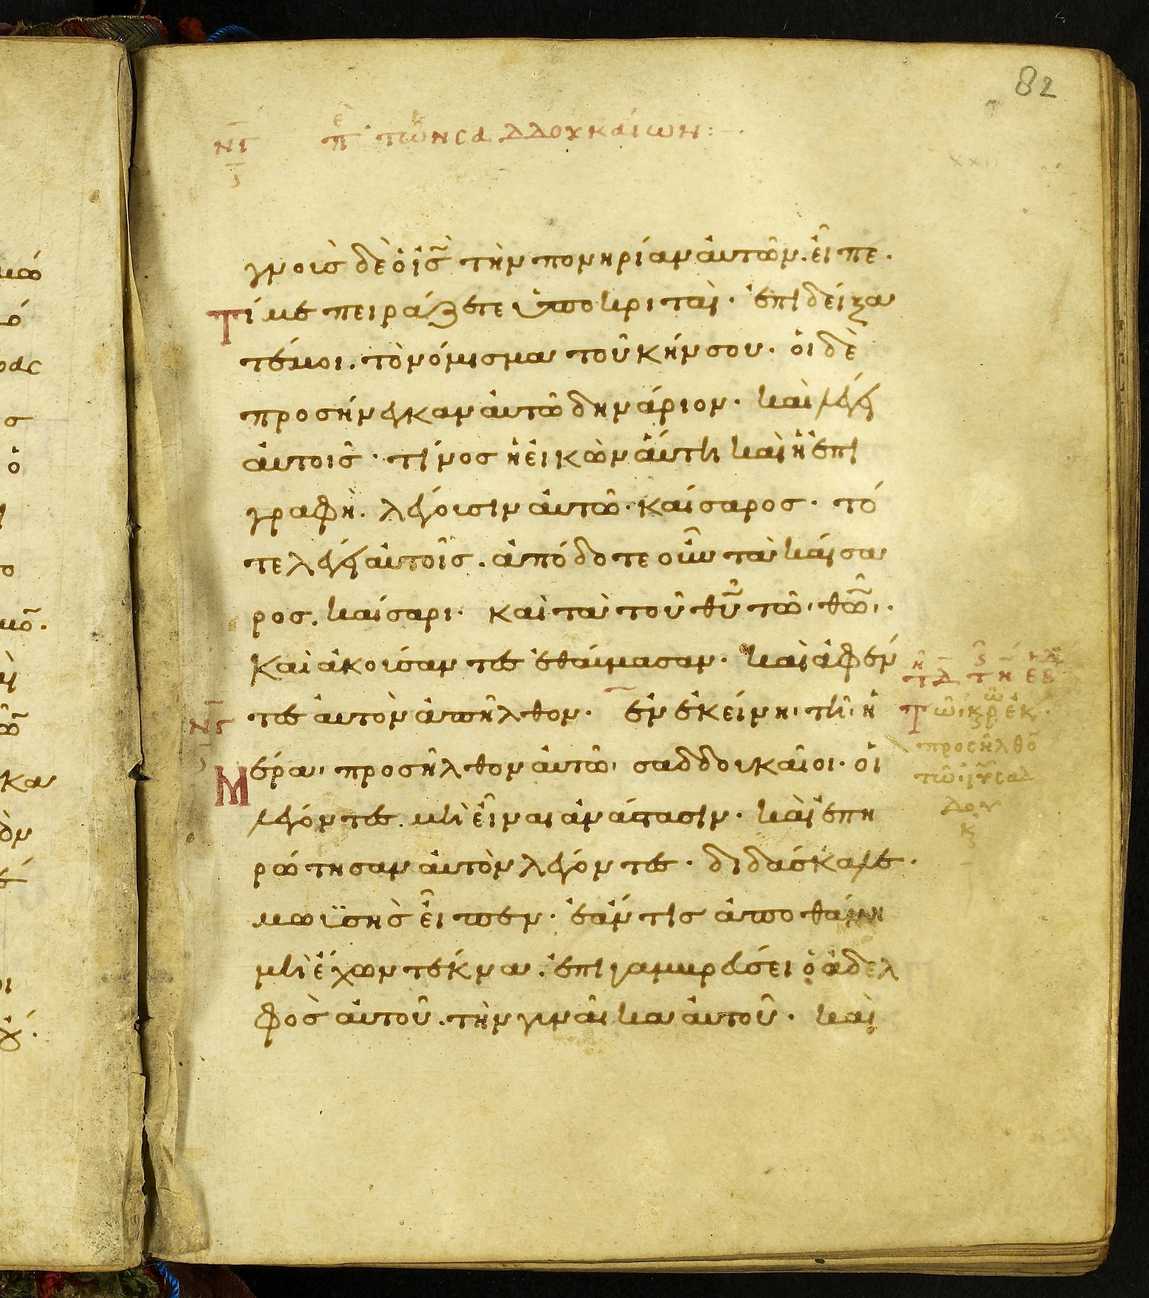 82
νϛ περὶ τῶν σαδδουκαίων:
γνοὺς δὲ ὁ ἰ̅ς̅ τὴν πονηρίαν ἀυτῶν. εἶπε.
Τί με πειράζετε ὑποκριταὶ· ἐπιδείξα
τέ μοι. τὸ νόμισμα τοῦ κήνσου. ὁι δὲ
προσήνεγκαν ἀυτῶ δηνάριον. καὶ λέγει
ἀυτοῖς· τίνος ἡ εἰκὼν ἅυτη καὶ ἡ ἐπι
γραφὴ. λέγουσιν ἀυτῶ· καίσαρος· τό
τε λέγει ἀυτοῖς. ἀπόδοτε οὖν τὰ καίσα
ρος. καίσαρι. καὶ τὰ τοῦ θ̅υ̅ τῶ θ̅ω̅.
καὶ ἀκούσαντες ἐθαύμασαν. καὶ ἀφέν
τες ἀυτὸν ἀπῆλθον. ἐν ἐκείνη τῆ ἡ
Μέρα, προσῆλθον ἀυτῶ, σαδδουκαῖοι. οἱ
λέγοντες. μὴ εἶναι ἀνάστασιν. καὶ ἐπη
ρώτησαν ἀυτὸν λέγοντες. διδάσκαλε.
μωϋσὴς εἶπεν. ἐάν τις ἀποθάνη
μὴ ἔχων τέκνα. ἐπιγαμβρεύσει ὁ ἀδελ
φὸς ἀυτοῦ. τὴν γυναῖκα ἀυτοῦ. καὶ
Τῶ κ̅ρ̅ ἐκ
προσῆλθο
τῶ ἰ̅υ̅ σαδ
δου
κ